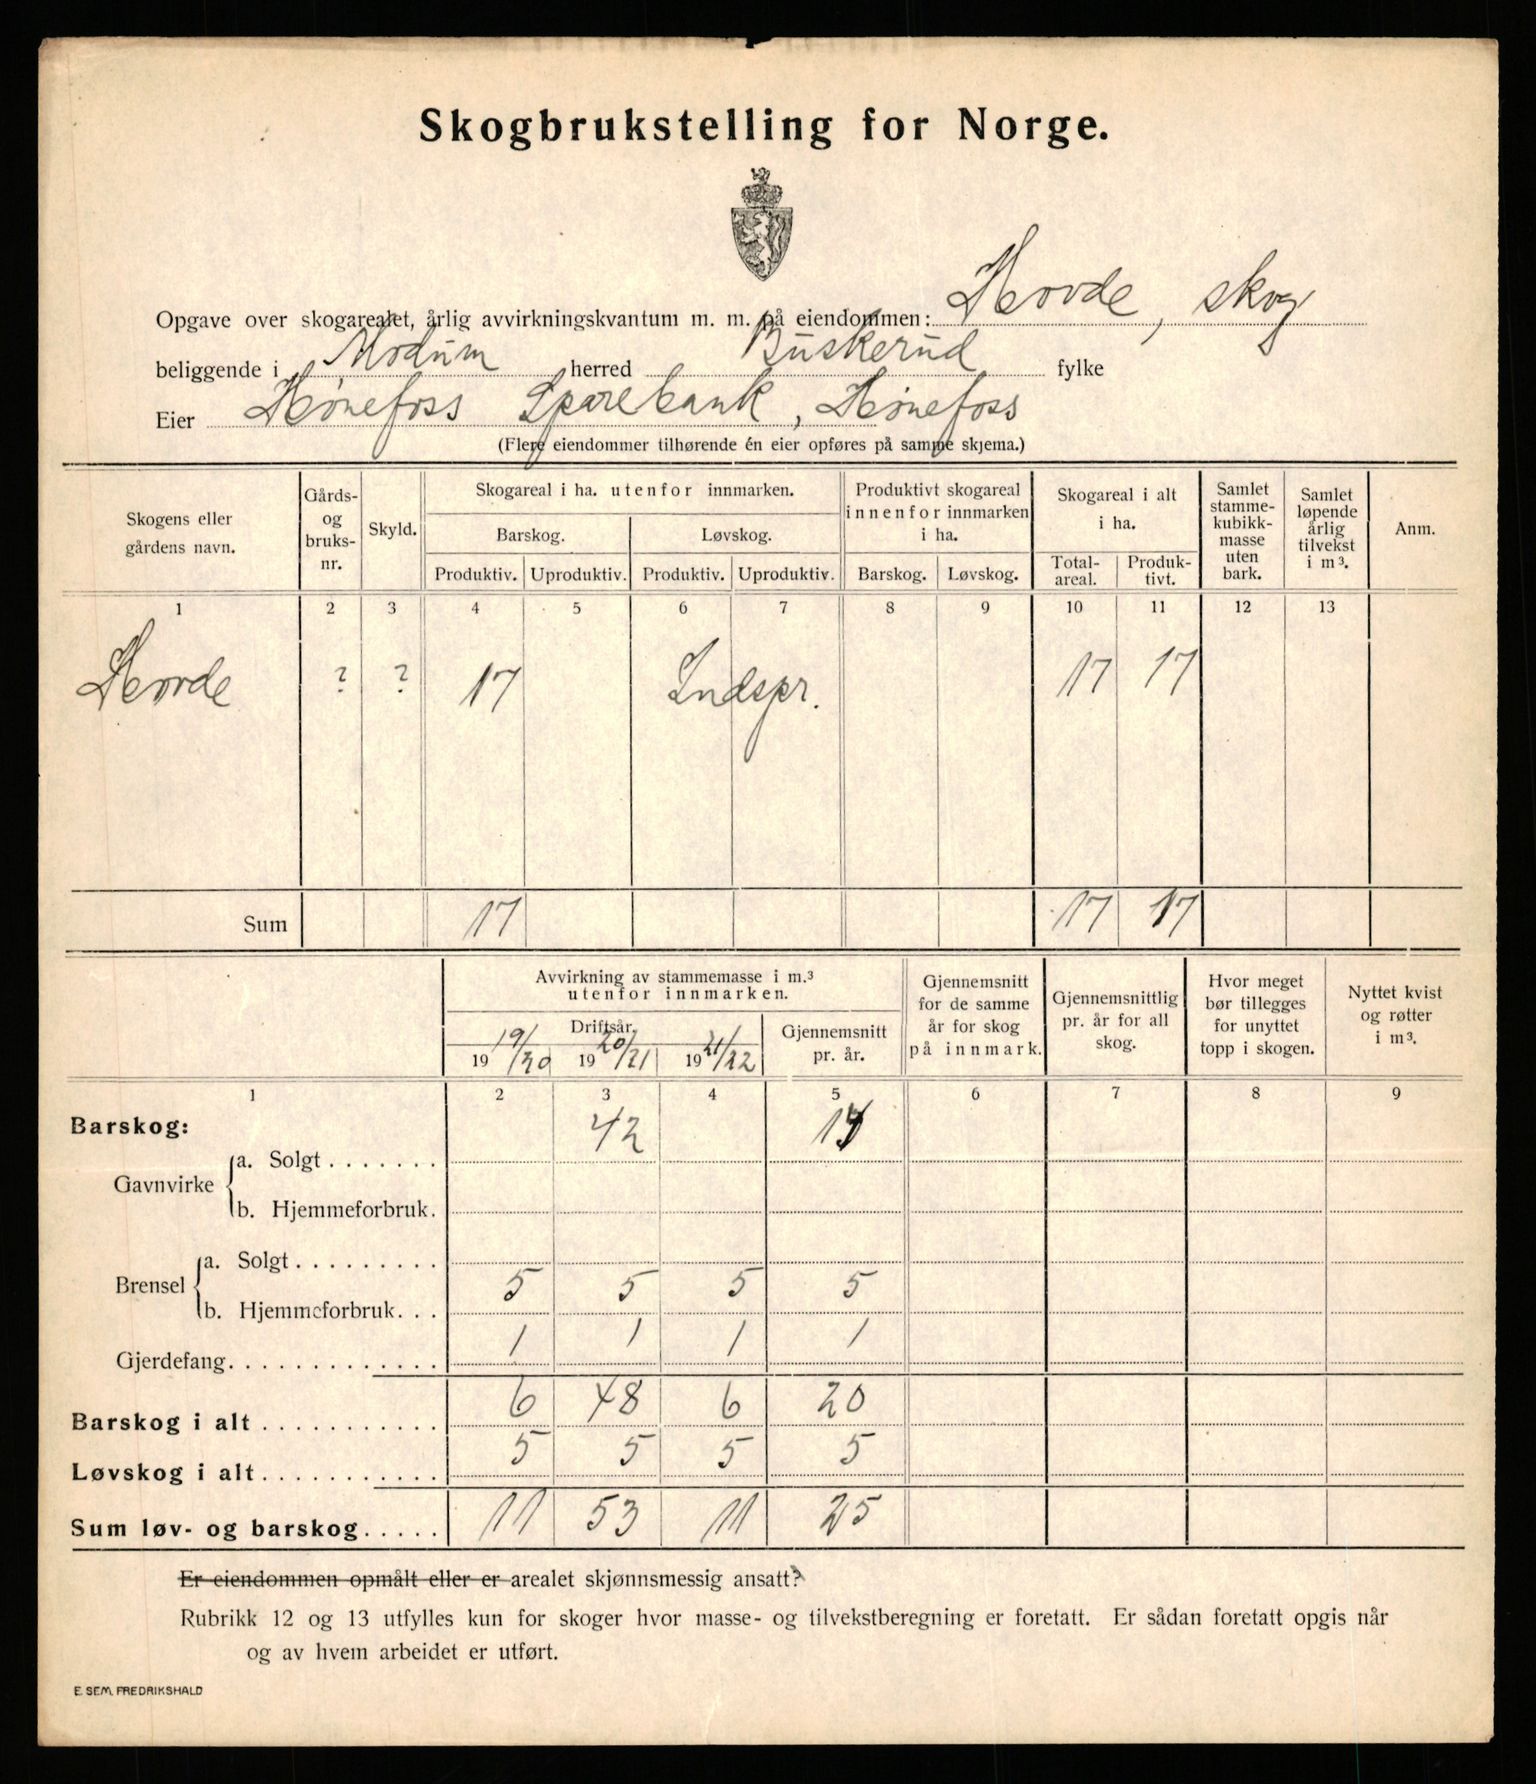 Skogbrukstelling for Norge.
Opgave over skogarealet, årlig avvirkningskvantum m. m. på eiendommen: Hovde, skog
beliggende i Modum herred Buskerud fylke
Eier Hønefoss Sparebank, Hønefoss
(Flere eiendommer tilhørende én eier opføres på samme skjema.)
Skogens eller gårdens navn. Gårds- og bruks- nr. Skyld. Skogareal i ha. utenfor innmarken. Produktivt skogareal innenfor innmarken i ha. Skogareal i alt i ha. Samlet stamme- kubikk- masse uten bark. Samlet løpende årlig tilvekst i m³. Anm.
Barskog. Løvskog.
Produktiv. Uproduktiv. Produktiv. Uproduktiv. Barskog. Løvskog. Total- areal. Produk- tivt.
1 2 3 4 5 6 7 8 9 10 11 12 13
Hovde ? ? 17 Indspr. 17 17
Sum 17 17 17
Avvirkning av stammemasse i m.³ utenfor innmarken. Gjennemsnitt for de samme år for skog på innmark. Gjennemsnittlig pr. år for all skog. Hvor meget bør tillegges for unyttet topp i skogen. Nyttet kvist og røtter i m³.
Driftsår. Gjennemsnitt pr. år.
19 19/20 19 20/21 19 21/22
1 2 3 4 5 6 7 8 9
Barskog: 42
Gavnvirke a. Solgt . . . . . . .
b. Hjemmeforbruk.
Brensel a. Solgt . . . . . . . . .
b. Hjemmeforbruk. . . 5 5 5 5
Gjerdefang. . . . . . . . . . . . . 1 1 1 1
Barskog i alt . . . . . . . . . . . 6 48 6 20
Løvskog i alt . . . . . . . . . . . 5 5 5 5
Sum løv- og barskog . . . . . 11 53 11 25
Er eiendommen opmålt eller er arealet skjønnsmessig ansatt?
Rubrikk 12 og 13 utfylles kun for skoger hvor masse- og tilvekstberegning er foretatt. Er sådan foretatt opgis når
og av hvem arbeidet er utført.
E. SEM, FREDRIKSHALD